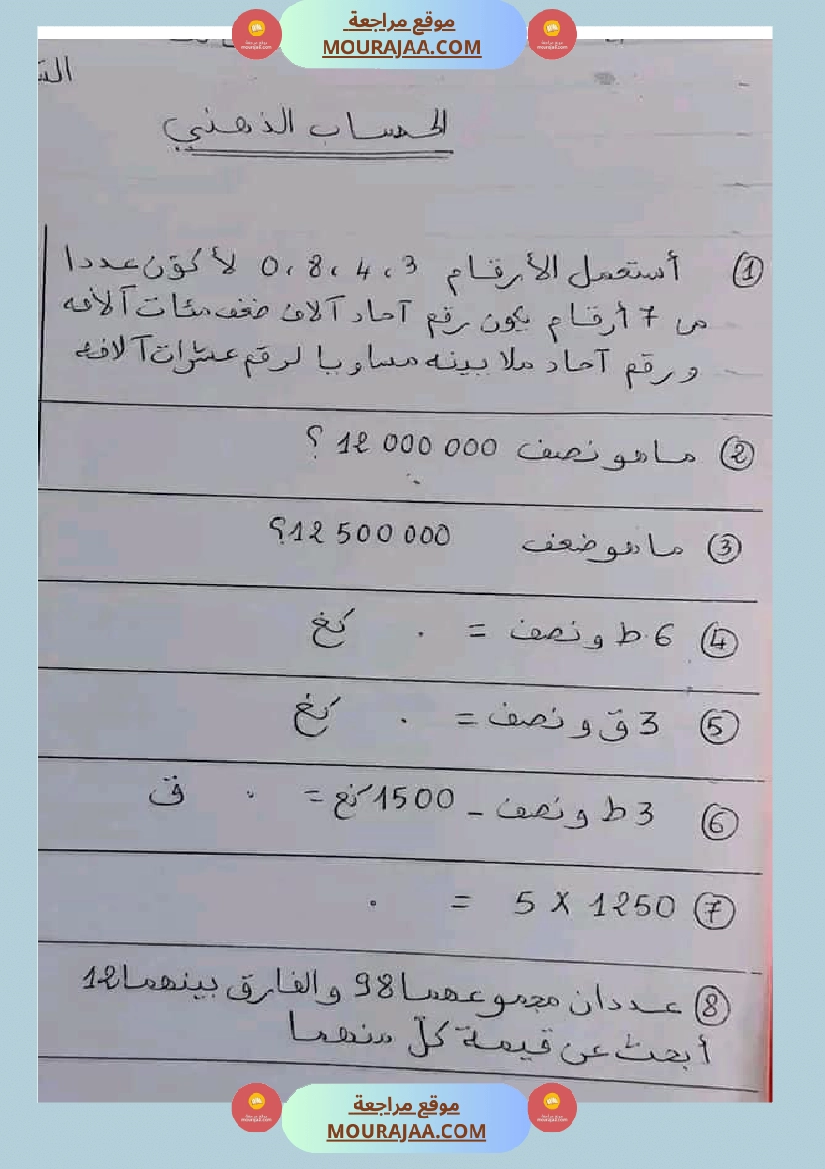 موقع مراجعة
MOURAJAA.COM
الحساب الذهني
① أستعمل الأرقام 3، 4، 8، 0 لأكوّن عددا
من 7 أرقام يكون رقم آحاد آلافه ضعف مئات آلافه
و رقم آحاد ملايينه مساويا لرقم عشرات آلافه
② ما هو نصف 12 000 000 ؟
③ ما هو ضعف 12 500 000؟
④ 6 ط و نصف = . كغ
⑤ 3 ق و نصف = . كغ
⑥ 3 ط و نصف - 1500 كغ = . ق
⑦ 1250 X 5 = .
⑧ عددان مجموعهما 98 والفارق بينهما 12
أبحث عن قيمة كلّ منهما
موقع مراجعة
MOURAJAA.COM